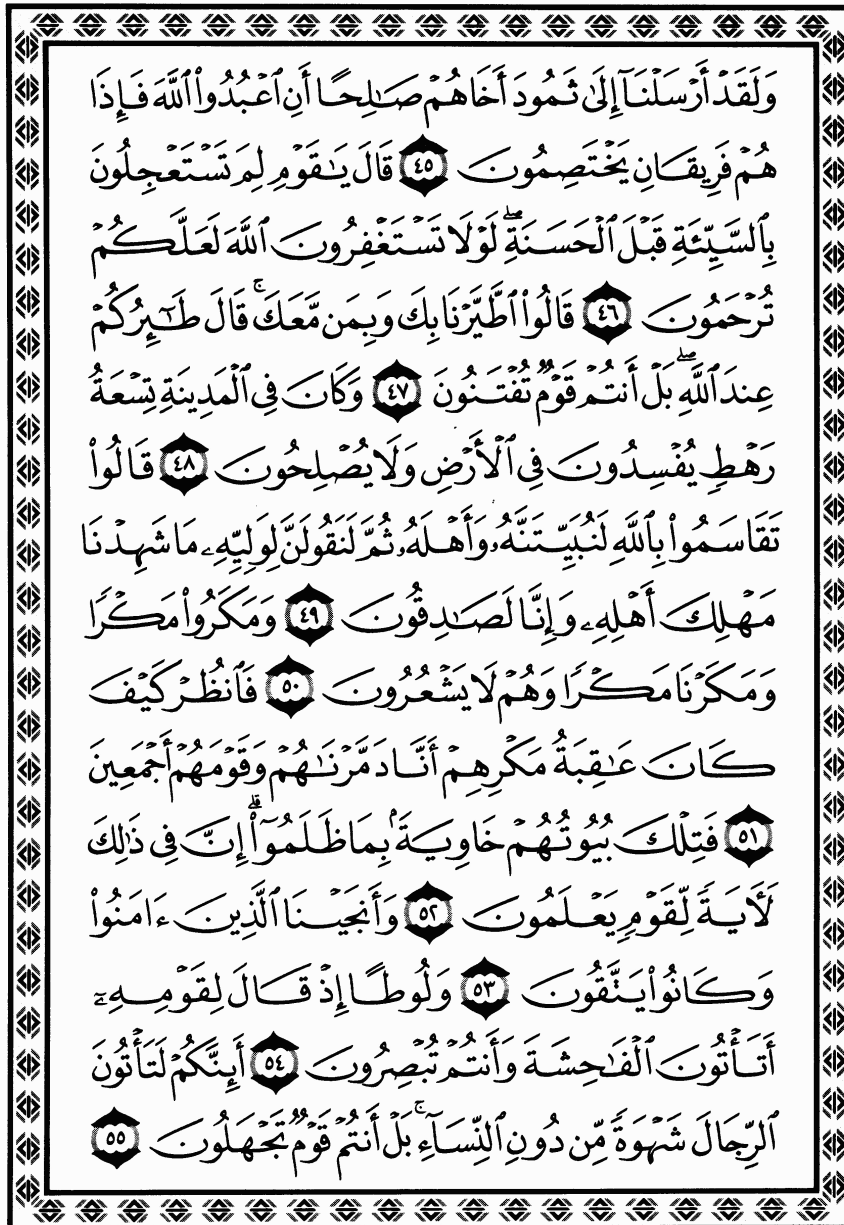 وَلَقَدْ أَرْسَلْنَآ إِلَىٰ ثَمُودَ أَخَاهُمْ صَـٰلِحًا أَنِ ٱعْبُدُوا۟ ٱللَّهَ فَإِذَا
هُمْ فَرِيقَانِ يَخْتَصِمُونَ ٤٥ قَالَ يَـٰقَوْمِ لِمَ تَسْتَعْجِلُونَ
بِٱلسَّيِّئَةِ قَبْلَ ٱلْحَسَنَةِ ۖ لَوْلَا تَسْتَغْفِرُونَ ٱللَّهَ لَعَلَّكُمْ
تُرْحَمُونَ ٤٦ قَالُوا۟ ٱطَّيَّرْنَا بِكَ وَبِمَن مَّعَكَ ۚ قَالَ طَـٰٓئِرُكُمْ
عِندَ ٱللَّهِ ۖ بَلْ أَنتُمْ قَوْمٌ تُفْتَنُونَ ٤٧ وَكَانَ فِى ٱلْمَدِينَةِ تِسْعَةُ
رَهْطٍ يُفْسِدُونَ فِى ٱلْأَرْضِ وَلَا يُصْلِحُونَ ٤٨ قَالُوا۟
تَقَاسَمُوا۟ بِٱللَّهِ لَنُبَيِّتَنَّهُۥ وَأَهْلَهُۥ ثُمَّ لَنَقُولَنَّ لِوَلِيِّهِۦ مَا شَهِدْنَا
مَهْلِكَ أَهْلِهِۦ وَإِنَّا لَصَـٰدِقُونَ ٤٩ وَمَكَرُوا۟ مَكْرًا
وَمَكَرْنَا مَكْرًا وَهُمْ لَا يَشْعُرُونَ ٥٠ فَٱنظُرْ كَيْفَ
كَانَ عَـٰقِبَةُ مَكْرِهِمْ أَنَّا دَمَّرْنَـٰهُمْ وَقَوْمَهُمْ أَجْمَعِينَ
٥١ فَتِلْكَ بُيُوتُهُمْ خَاوِيَةًۢ بِمَا ظَلَمُوٓا۟ ۗ إِنَّ فِى ذَٰلِكَ
لَـَٔايَةً لِّقَوْمٍ يَعْلَمُونَ ٥٢ وَأَنجَيْنَا ٱلَّذِينَ ءَامَنُوا۟
وَكَانُوا۟ يَتَّقُونَ ٥٣ وَلُوطًا إِذْ قَالَ لِقَوْمِهِۦٓ
أَتَأْتُونَ ٱلْفَـٰحِشَةَ وَأَنتُمْ تُبْصِرُونَ ٥٤ أَئِنَّكُمْ لَتَأْتُونَ
ٱلرِّجَالَ شَهْوَةً مِّن دُونِ ٱلنِّسَآءِ ۚ بَلْ أَنتُمْ قَوْمٌ تَجْهَلُونَ ٥٥